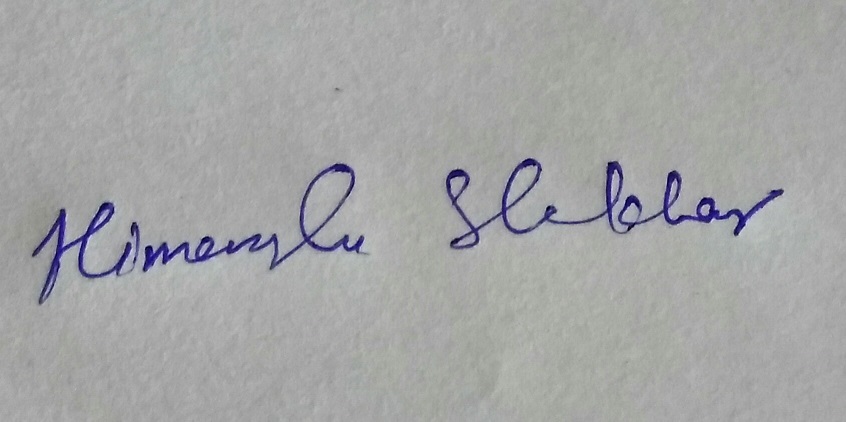 Himanshu Shekhar